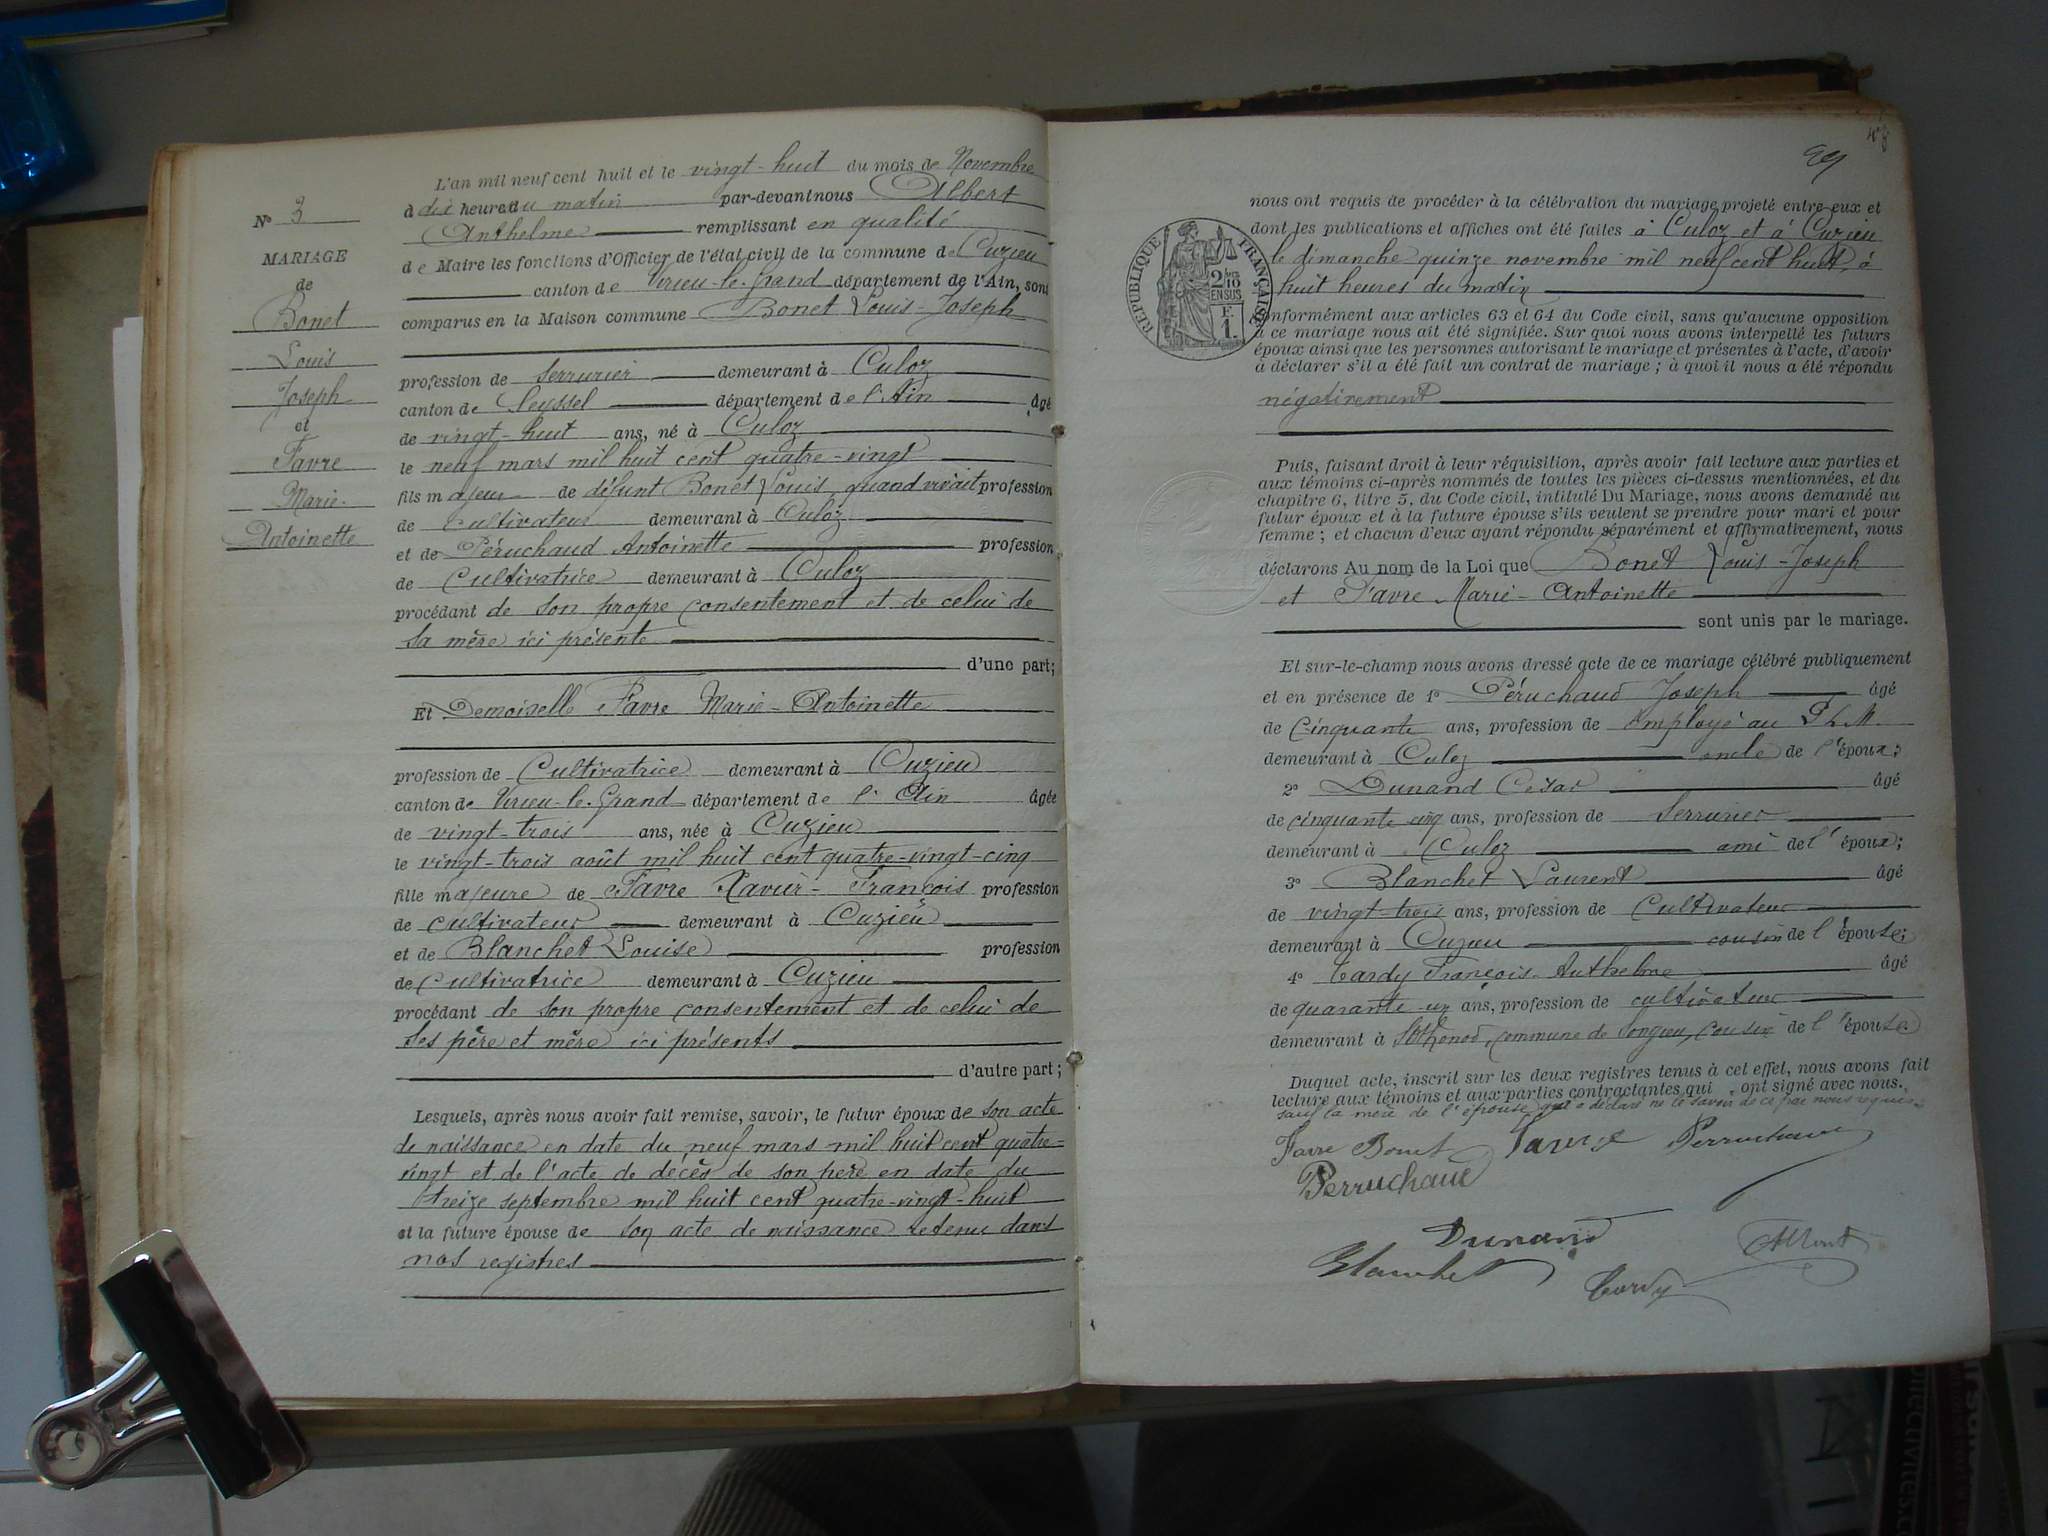 L'an mil neuf cent huit et le vingt-huit du mois de Novembre
à dix heures du matin par-devant nous Albert
Anthelme remplissant en qualité
de Maire les fonctions d'Officier de l'état civil de la commune de Cuzieu
canton de Virieu-le-Grand département de l'Ain, sont
comparus en la Maison commune Bonet Louis-Joseph
profession de Serrurier demeurant à Culoz
canton de Seyssel département de l'Ain âgé
de vingt-huit ans, né à Culoz
le neuf mars mil huit cent quatre-vingt
fils majeur de défunt Bonet Louis quand vivait profession
de Cultivateur demeurant à Culoz
et de Péruchaud Antoinette profession
de Cultivatrice demeurant à Culoz
procédant de son propre consentement et de celui de
sa mère ici présente
d'une part;
Et Demoiselle Favre Marie-Antoinette
profession de Cultivatrice demeurant à Cuzieu
canton de Virieu-le-Grand département de l'Ain âgée
de vingt-trois ans, née à Cuzieu
le vingt-trois août mil huit cent quatre-vingt-cinq
fille majeure de Favre Xavier-François profession
de cultivateur demeurant à Cuzieu
et de Blanchet Louise profession
de Cultivatrice demeurant à Cuzieu
procédant de son propre consentement et de celui de
ses père et mère ici présents
d'autre part;
Lesquels, après nous avoir fait remise, savoir, le futur époux de son acte
de naissance en date du neuf mars mil huit cent quatre-
vingt et de l'acte de décès de son père en date du
treize septembre mil huit cent quatre-vingt-huit
et la future épouse de son acte de naissance retenu dans
nos registres
N° 3
MARIAGE
de
Bonet
Louis
Joseph
et
Favre
Marie-
Antoinette
48
99
nous ont requis de procéder à la célébration du mariage projeté entre eux et
dont les publications et affiches ont été faites à Culoz et à Cuzieu
le dimanche quinze novembre mil neuf cent huit, à
huit heures du matin
RÉPUBLIQUE FRANÇAISE
2/10 EN SUS
F. 1.
conformément aux articles 63 et 64 du Code civil, sans qu'aucune opposition
à ce mariage nous ait été signifiée. Sur quoi nous avons interpellé les futurs
époux ainsi que les personnes autorisant le mariage et présentes à l'acte, d'avoir
à déclarer s'il a été fait un contrat de mariage; à quoi il nous a été répondu
négativement
Puis, faisant droit à leur réquisition, après avoir fait lecture aux parties et
aux témoins ci-après nommés de toutes les pièces ci-dessus mentionnées, et du
chapitre 6, titre 5, du Code civil, intitulé Du Mariage, nous avons demandé au
futur époux et à la future épouse s'ils veulent se prendre pour mari et pour
femme; et chacun d'eux ayant répondu séparément et affirmativement, nous
déclarons Au nom de la Loi que Bonet Louis-Joseph
et Favre Marie-Antoinette
sont unis par le mariage.
Et sur-le-champ nous avons dressé acte de ce mariage célébré publiquement
et en présence de 1° Péruchaud Joseph âgé
de Cinquante ans, profession de employé au P.L.M.
demeurant à Culoz oncle de l'époux;
2° Dunand César âgé
de cinquante cinq ans, profession de Serrurier
demeurant à Culoz ami de l'époux;
3° Blanchet Laurent âgé
de vingt-trois ans, profession de Cultivateur
demeurant à Cuzieu cousin de l'épouse;
4° Cardy François-Anthelme âgé
de quarante un ans, profession de cultivateur
demeurant à commune de Songieu, cousin de l'épouse
Duquel acte, inscrit sur les deux registres tenus à cet effet, nous avons fait
lecture aux témoins et aux parties contractantes qui ont signé avec nous.
sauf la mère de l'épouse qui a déclaré ne le savoir de ce par nous requise.
Favre Bonet Favre Perruchaud
Perruchaud
Dunand
Blanchet Cardy Albert